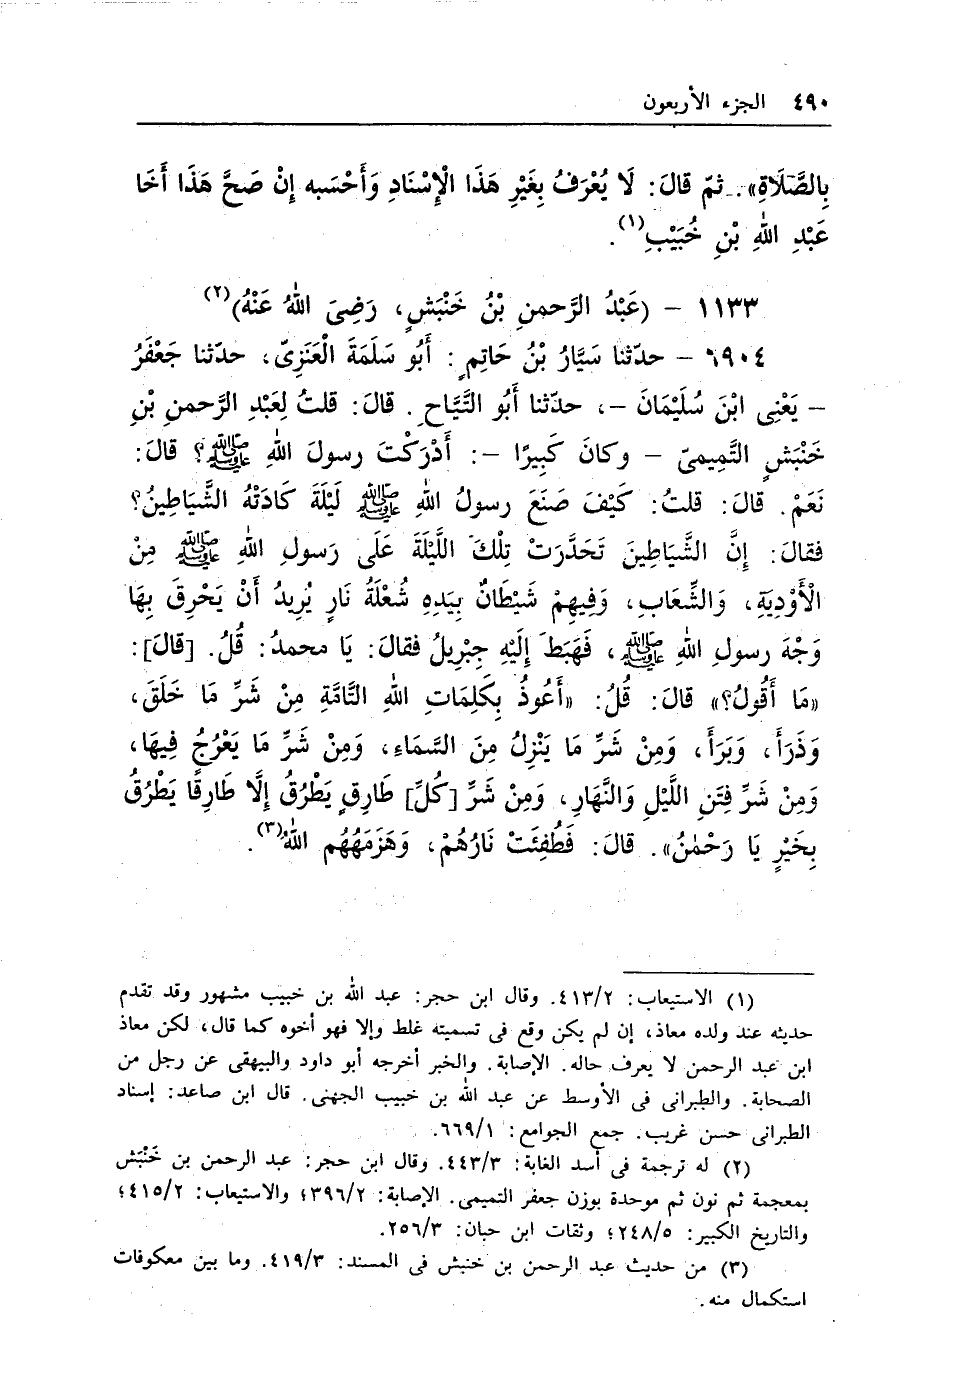 ٤٩٠ الجزء الأربعون
بِالصَّلَاةِ». ثمّ قالَ: لَا يُعْرَفُ بِغَيْرِ هَذَا الْإِسْنَادِ وَأَحْسَبه إنْ صَحَّ هَذَا أَخَا
عَبْدِ اللهِ بْنِ خُبَيْبِ(١).
١١٣٣ – (عَبْدُ الرَّحمنِ بْنُ خَنْبَشٍ، رَضِىَ اللهُ عَنْهُ)(٢)
٦٩٠٤ – حدّثنا سَيَّارُ بْنُ حَاتِمٍ: أَبُو سَلَمَةَ الْعَنَزِىّ، حدّثنا جَعْفَرُ
– يَعْنِى ابْنَ سُلَيْمَانَ –، حدّثنا أَبُو التَّيَّاحِ. قَالَ: قلتُ لِعَبْدِ الرَّحمنِ بْنِ
خَنْبَشٍ التَّمِيمِىّ – وكانَ كَبِيرًا –: أَدْرَكْتَ رسولَ اللهِ ﷺ؟ قالَ:
نَعَمْ. قَالَ: قلتُ: كَيْفَ صَنَعَ رسولُ اللهِ ﷺ لَيْلَةَ كَادَتْهُ الشَّيَاطِينُ؟
فقالَ: إِنَّ الشَّيَاطِينَ تَحَدَّرَتْ تِلْكَ اللَّيْلَةَ عَلَى رَسولِ اللهِ ﷺ مِنْ
الْأَوْدِيَةِ، وَالشِّعَابِ، وَفِيهِمْ شَيْطَانٌ بِيَدِهِ شُعْلَةُ نَارٍ يُرِيدُ أَنْ يَحْرِقَ بِهَا
وَجْهَ رسولِ اللهِ ﷺ، فَهَبَطَ إِلَيْهِ جِبْرِيلُ فقالَ: يَا محمدُ: قُلْ. [قالَ]:
«مَا أَقُولُ؟» قالَ: قُلْ: «أَعُوذُ بِكَلِمَاتِ اللهِ التَّامَّةِ مِنْ شَرِّ مَا خَلَقَ،
وَذَرَأَ، وَبَرَأَ، وَمِنْ شَرِّ مَا يَنْزِلُ مِنَ السَّمَاءِ، وَمِنْ شَرِّ مَا يَعْرُجُ فِيهَا،
وَمِنْ شَرِّ فِتَنِ اللَّيْلِ وَالنَّهَارِ، وَمِنْ شَرِّ [كُلِّ] طَارِقٍ يَطْرُقُ إِلَّا طَارِقًا يَطْرُقُ
بِخَيْرٍ يَا رَحْمٰنُ». قالَ: فَطُفِئَتْ نَارُهُمْ، وَهَزَمَهُهُم اللهُ(٣).
(١) الاستيعاب: ٤١٣/٢. وقال ابن حجر: عبد الله بن خبيب مشهور وقد تقدم
حديثه عند ولده معاذ، إن لم يكن وقع فى تسميته غلط وإلا فهو أخوه كما قال، لكن معاذ
ابن عبد الرحمن لا يعرف حاله. الإصابة. والخبر أخرجه أبو داود والبيهقى عن رجل من
الصحابة. والطبرانى فى الأوسط عن عبد الله بن خبيب الجهنى. قال ابن صاعد: إسناد
الطبرانى حسن غريب. جمع الجوامع: ٦٦٩/١.
(٢) له ترجمة فى أسد الغابة: ٤٤٣/٣. وقال ابن حجر: عبد الرحمن بن خَنْبَش
بمعجمة ثم نون ثم موحدة بوزن جعفر التميمى. الإصابة: ٣٩٦/٢؛ والاستيعاب: ٤١٥/٢؛
والتاريخ الكبير: ٢٤٨/٥؛ وثقات ابن حبان: ٢٥٦/٣.
(٣) من حديث عبد الرحمن بن خنبش فى المسند: ٤١٩/٣. وما بين معكوفات
استكمال منه.